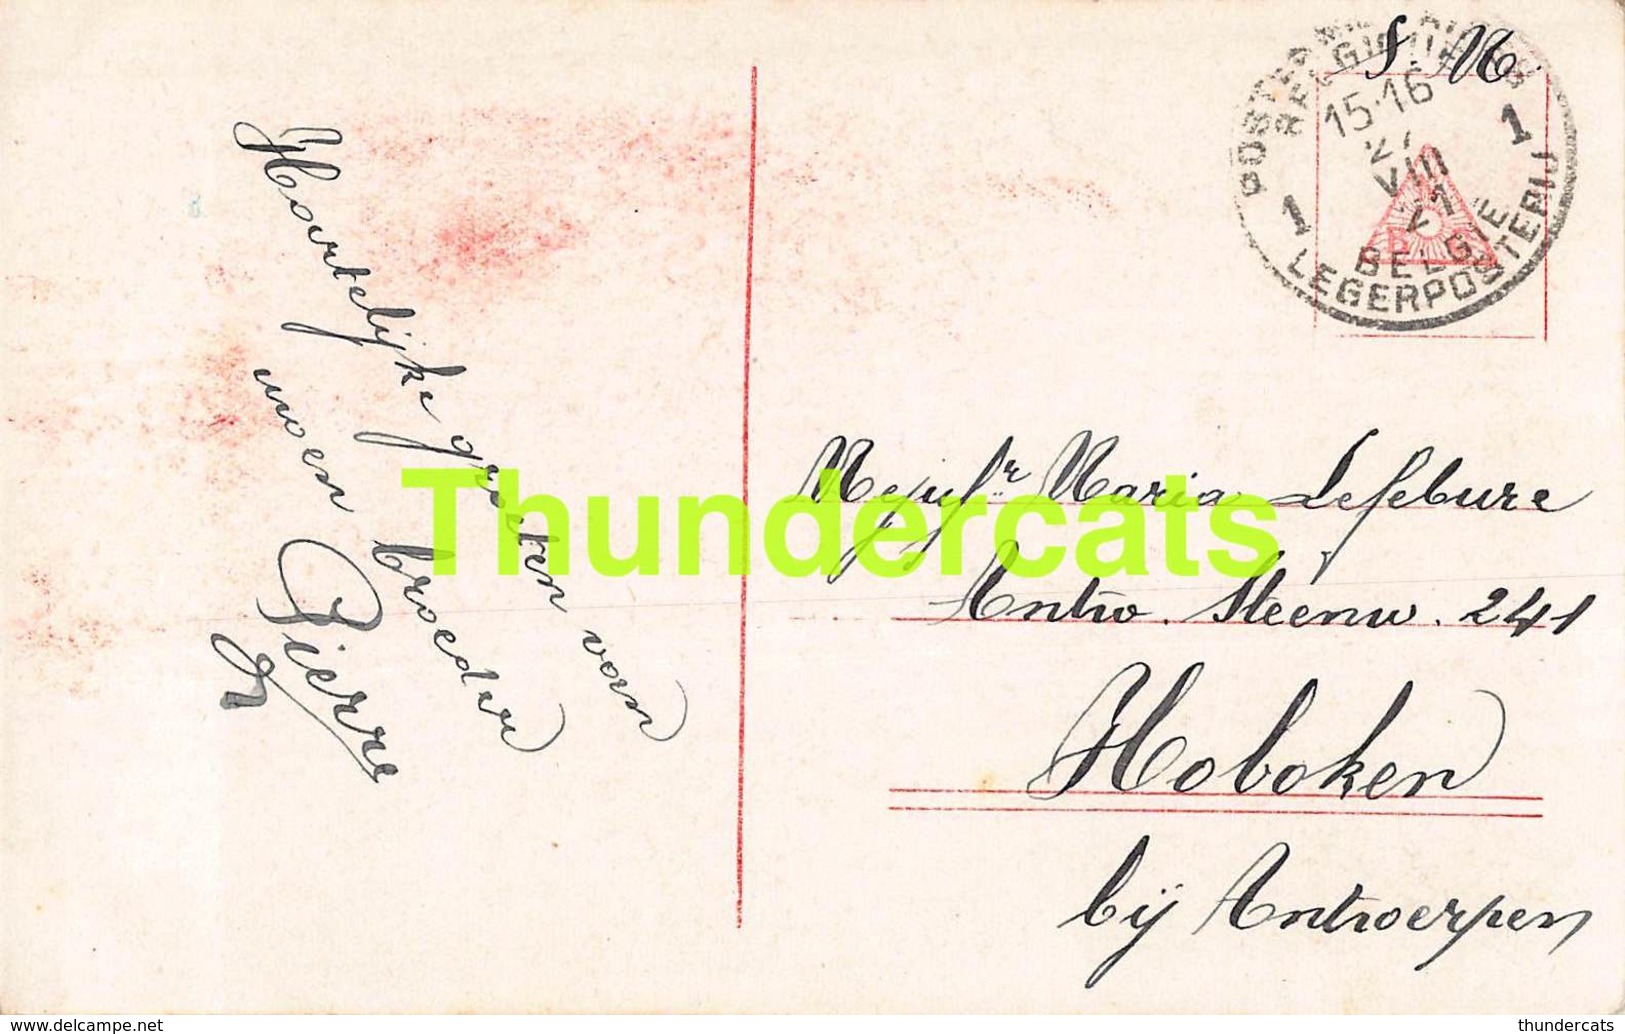 Hartelijke groeten van
uwen broeder
Pierre
S. M.
POSTES MILITAIRES
BELGIQUE
15-16
27
VIII
21
1 1
BELGIE
LEGERPOSTERIJ
Mejufr Maria Lefebure
Antw. Steenw. 241
Hoboken
bij Antwerpen
Thundercats
www.delcampe.net
thundercats